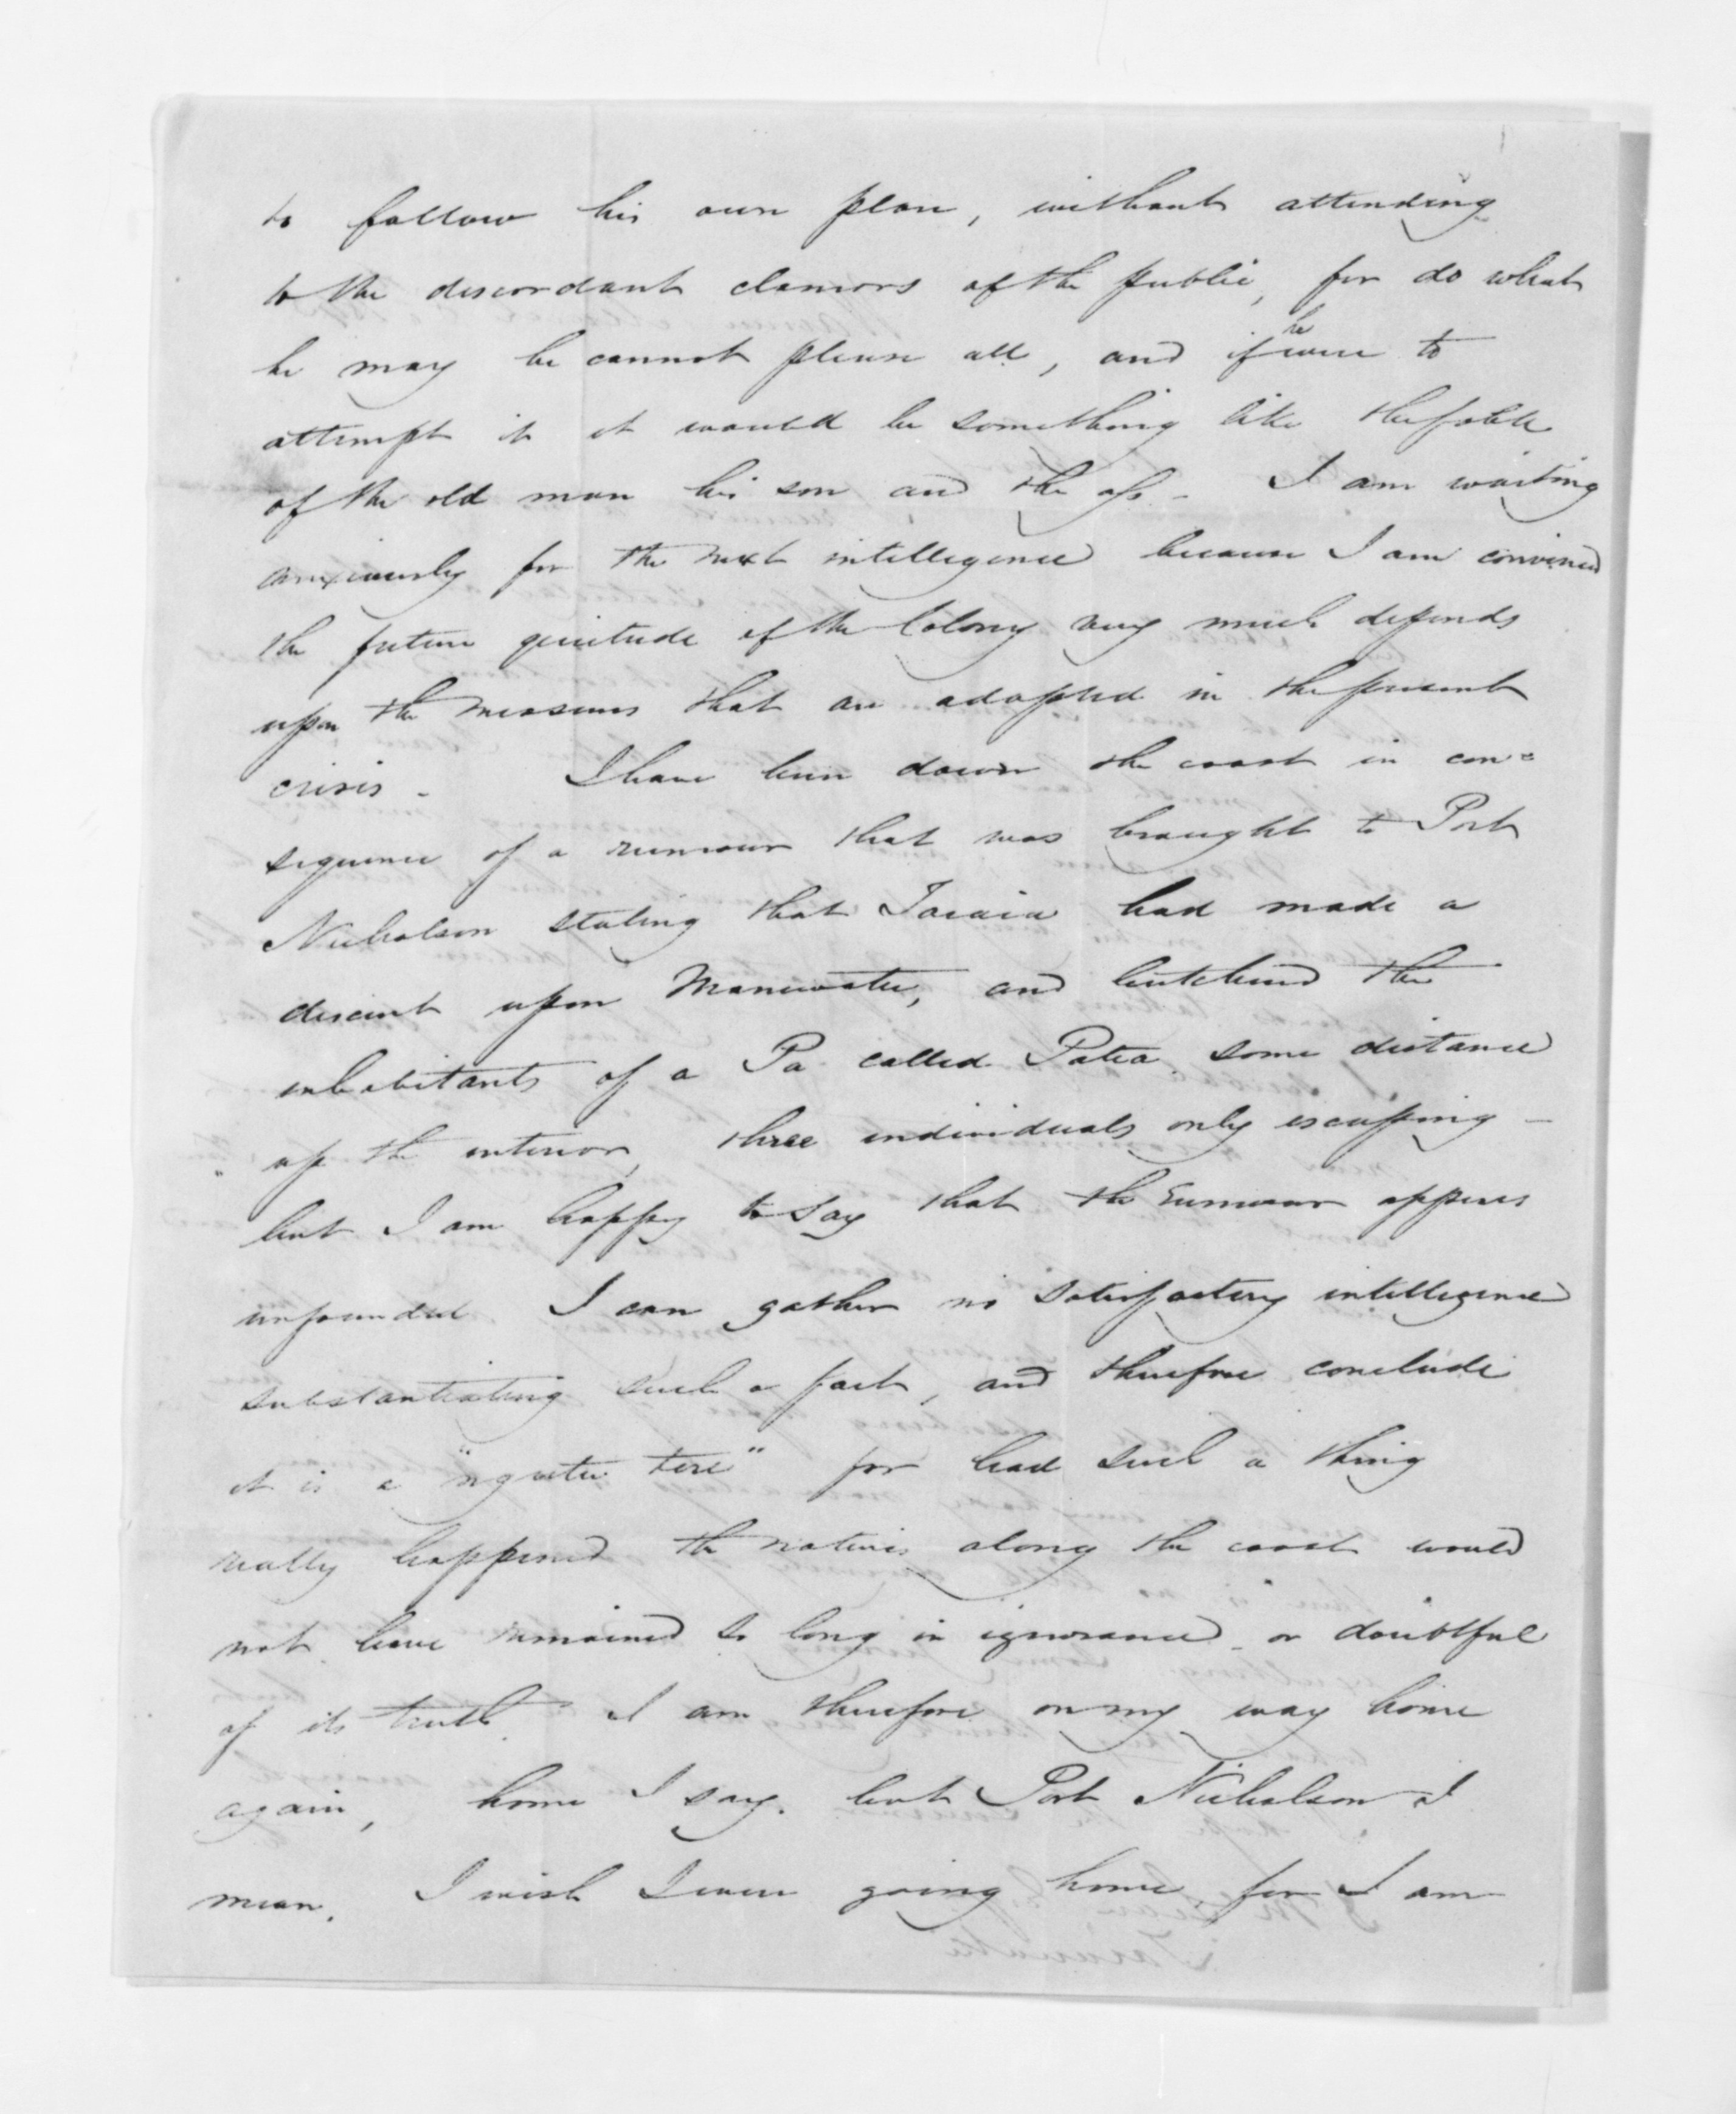 to follow his own plan, without attending
to the discordant clamors of the public, for do what
he may he cannot please all, and if he were to
attempt it it would be something like the fable
of the old man his son and the ass - I am waiting
anxiously for the next intelligence because I am convinced
the future quietude of the Colony very much depends
upon the measures that are adopted in the present
crisis - I have been down the coast in con=
sequence of a rumour that was brought to Port
Nicholson stating that Taraia had made a
descent upon Manewatu, and butchered the
inhabitants of a Pa called Patea some distance
up the interior, three individuals only escaping -
but I am happy to say that the rumour appears
unfounded I can gather no satisfactory intelligence
substantiating such a fact, and therefore conclude
it is a "ngutu tere" for had such a thing
really happened the natives along the coast would
not have remained so long in ignorance or doubtful
of its truth. I am therefore on my way home
again, home I say. but Port Nicholson I
mean. I wish I were going home, for I am